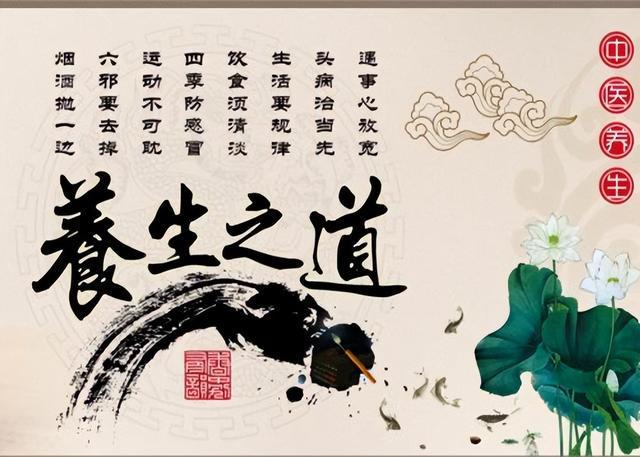 中医养生
遇事心放宽
头病治当先
生活要规律
饮食须清淡
四季防感冒
运动不可耽
六邪要去掉
烟酒抛一边
養生之道